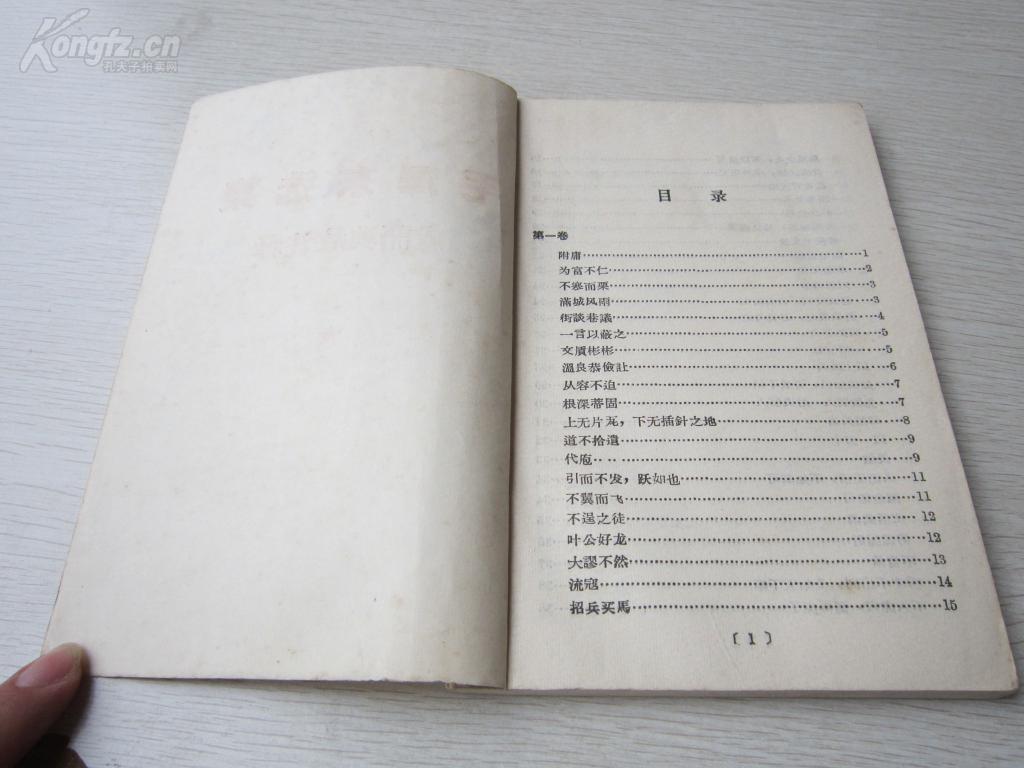 Kongfz.cn
孔夫子拍卖网
目 录
第一卷
附庸……1
为富不仁……2
不寒而栗……3
满城风雨……3
街談巷議……4
一言以蔽之……5
文质彬彬……5
溫良恭儉让……6
从容不迫……7
根深蒂固……7
上无片瓦，下无插針之地……8
道不拾遺……9
代庖……9
引而不发，跃如也……11
不翼而飞……11
不逞之徒……12
叶公好龙……12
大謬不然……13
流寇……14
招兵买馬……15
〔1〕